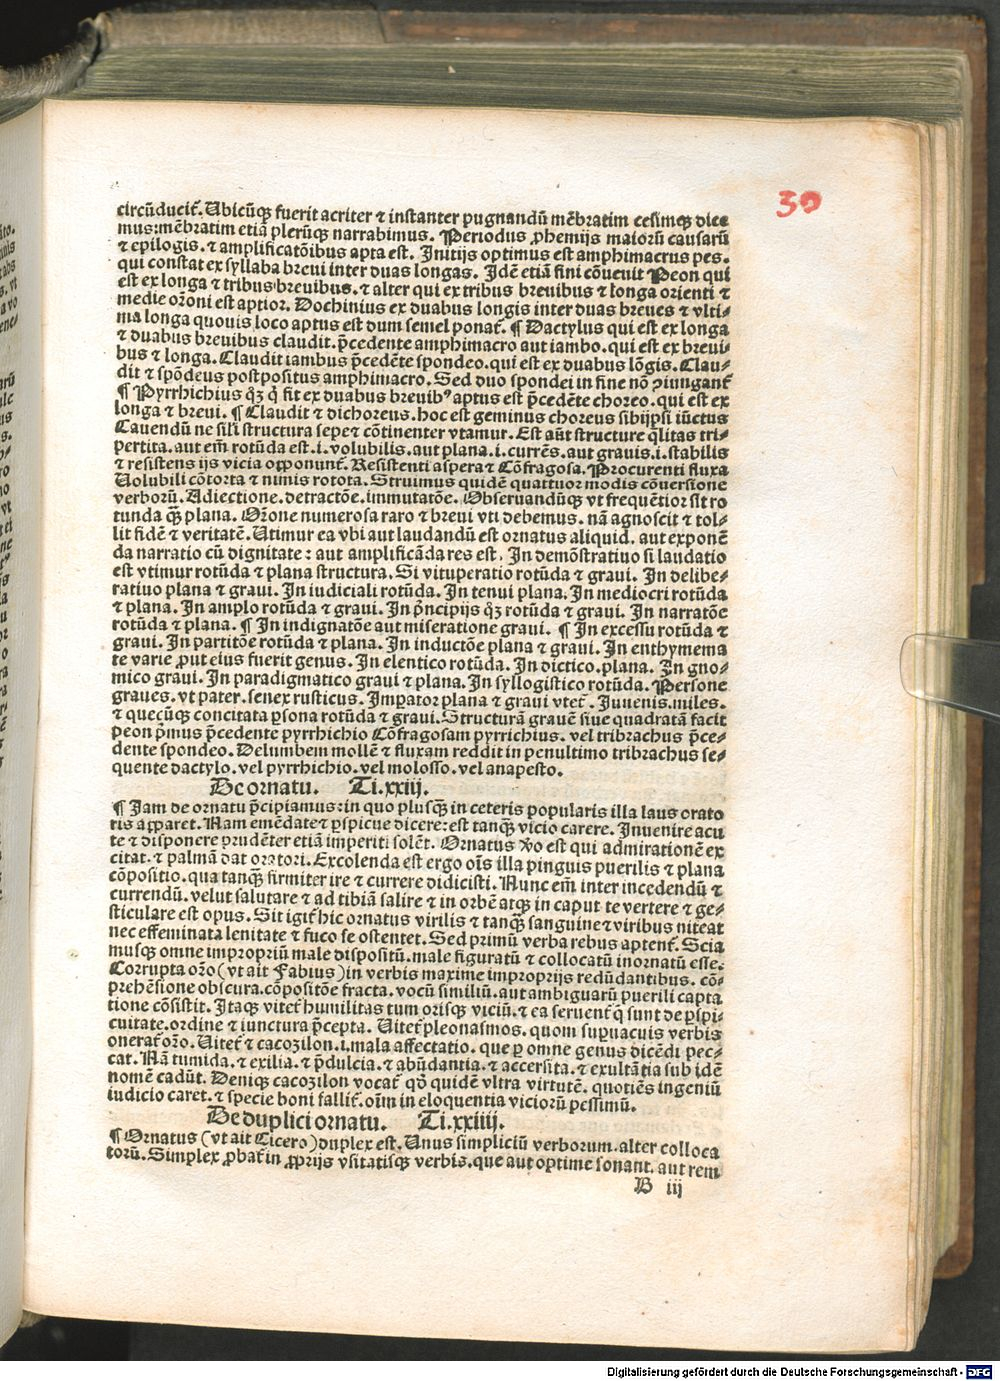 30
circūduciť. Ubicūqꝫ fuerit acriter ⁊ instanter pugnandū mēbratim cesimqꝫ dice
mus: mēbratim etiā plerūqꝫ narrabimus. Periodus ꝓhemijs maiorū causarū
⁊ epilogis. ⁊ amplificatōibus apta est. Initijs optimus est amphimacrus pes.
qui constat ex syllaba breui inter duas longas. Idē etiā fini cōuenit Peon qui
est ex longa ⁊ tribus breuibus. ⁊ alter qui ex tribus breuibus ⁊ longa orienti ⁊
medie oꝛoni est aptior. Dochinius ex duabus longis inter duas breues ⁊ vlti⸗
ma longa quouis loco aptus est dum semel ponať. ¶ Dactylus qui est ex longa
⁊ duabus breuibus claudit. p̄cedente amphimacro aut iambo. qui est ex breui⸗
bus ⁊ longa. Claudit iambus p̄cedēte spondeo. qui est ex duabus lōgis. Clau⸗
dit ⁊ spōdeus postpositus amphimacro. Sed duo spondei in fine nō ꝯiungant̄
¶ Pyrrhichius qꝫ q̇ fit ex duabus breuibꝰ aptus est p̄cedēte choreo. qui est ex
longa ⁊ breui. ¶ Claudit ⁊ dichoreus. hoc est geminus choreus sibijpsi iūctus
Cauendū ne sil̄i structura sepe ⁊ cōtinenter vtamur. Est aūt structure q̄litas tri⸗
pertita. aut em̄ rotūda est. i. volubilis. aut plana. i. currēs. aut grauis. i. stabilis
⁊ resistens ijs vicia opponunť. Resistenti aspera ⁊ Cōfragosa. Procurenti fluxa
Uolubili cōtorta ⁊ nimis rotota. Struimus quidē quattuor modis cōuersione
verborū. Adiectione. detractōe. immutatōe. Obseruandūqꝫ vt frequētior sit ro
tunda qꝫ̄ plana. Oꝛone numerosa raro ⁊ breui vti debemus. nā agnoscit ⁊ tol⸗
lit fidē ⁊ veritatē. Utimur ea vbi aut laudandū est ornatus aliquid. aut exponē
da narratio cū dignitate: aut amplificāda res est. In demōstratiuo si laudatio
est vtimur rotūda ⁊ plana structura. Si vituperatio rotūda ⁊ graui. In delibe⸗
ratiuo plana ⁊ graui. In iudiciali rotūda. In tenui plana. In mediocri rotūda
⁊ plana. In amplo rotūda ⁊ graui. In p̄ncipijs qꝫ rotūda ⁊ graui. In narratōe
rotūda ⁊ plana. ¶ In indignatōe aut miseratione graui. ¶ In excessu rotūda ⁊
graui. In partitōe rotūda ⁊ plana. In inductōe plana ⁊ graui. In enthymema
te varie ꝓut eius fuerit genus. In elentico rotūda. In dictico. plana. In gno⸗
mico graui. In paradigmatico graui ⁊ plana. In syllogistico rotūda. Persone
graues. vt pater. senex rusticus. Imꝑator plana ⁊ graui vteť. Iuuenis. miles.
⁊ quecūqꝫ concitata ꝑsona rotūda ⁊ graui. Structurā grauē siue quadratā facit
peon p̄mus p̄cedente pyrrhichio Cōfragosam pyrrichius. vel tribrachus p̄ce⸗
dente spondeo. Delumbem mollē ⁊ fluxam reddit in penultimo tribrachus se⸗
quente dactylo. vel pyrrhichio. vel molosso. vel anapesto.
De ornatu. Ti. xxiij.
¶ Iam de ornatu p̄cipiamus: in quo plusqꝫ̄ in ceteris popularis illa laus orato
ris apparet. Nam emēdate ⁊ ꝑspicue dicere: est tanqꝫ̄ vicio carere. Inuenire acu
te ⁊ disponere prudēter etiā imperiti solēt. Ornatus ꝟo est qui admirationē ex
citat. ⁊ palmā dat oratori. Excolenda est ergo oīs illa pinguis puerilis ⁊ plana
cōpositio. qua tanqꝫ̄ firmiter ire ⁊ currere didicisti. Nunc em̄ inter incedendū ⁊
currendū. velut salutare ⁊ ad tibiā salire ⁊ in orbē atqꝫ in caput te vertere ⁊ ge⸗
sticulare est opus. Sit igiť hic ornatus virilis ⁊ tanqꝫ̄ sanguine ⁊ viribus niteat
nec effeminata lenitate ⁊ fuco se ostentet. Sed primū verba rebus aptenť. Scia
musqꝫ omne impropriū male dispositū. male figuratū ⁊ collocatū inornatū esse.
Corrupta oꝛo (vt ait Fabius) in verbis maxime improprijs redūdantibus. cō⸗
prehēsione obscura. cōpositōe fracta. vocū similiū. aut ambiguarū puerili capta
tione cōsistit. Itaqꝫ viteť humilitas tum orisqꝫ viciū. ⁊ ea seruenť q̄ sunt de ꝑspi⸗
cuitate. ordine ⁊ iunctura p̄cepta. Uiteť pleonasmos. quom suꝑuacuis verbis
onerať oꝛo. Uiteť ⁊ cacozilon. i. mala affectatio. que ꝑ omne genus dicēdi pec⸗
cat. Nā tumida. ⁊ exilia. ⁊ p̄dulcia. ⁊ abūdantia. ⁊ accersita. ⁊ exultātia sub idē
nomē cadūt. Deniqꝫ cacozilon vocať qꝺ quidē vltra virtutē. quotiēs ingeniū
iudicio caret. ⁊ specie boni falliť. oīm in eloquentia viciorū pessimū.
De duplici ornatu. Ti. xxiiij.
¶ Ornatus (vt ait Cicero) duplex est. Unus simpliciū verborum. alter colloca
torū. Simplex ꝓbať in ꝓprijs vsitatisqꝫ verbis. que aut optime sonant. aut rem
B iij
Digitalisierung gefördert durch die Deutsche Forschungsgemeinschaft - DFG